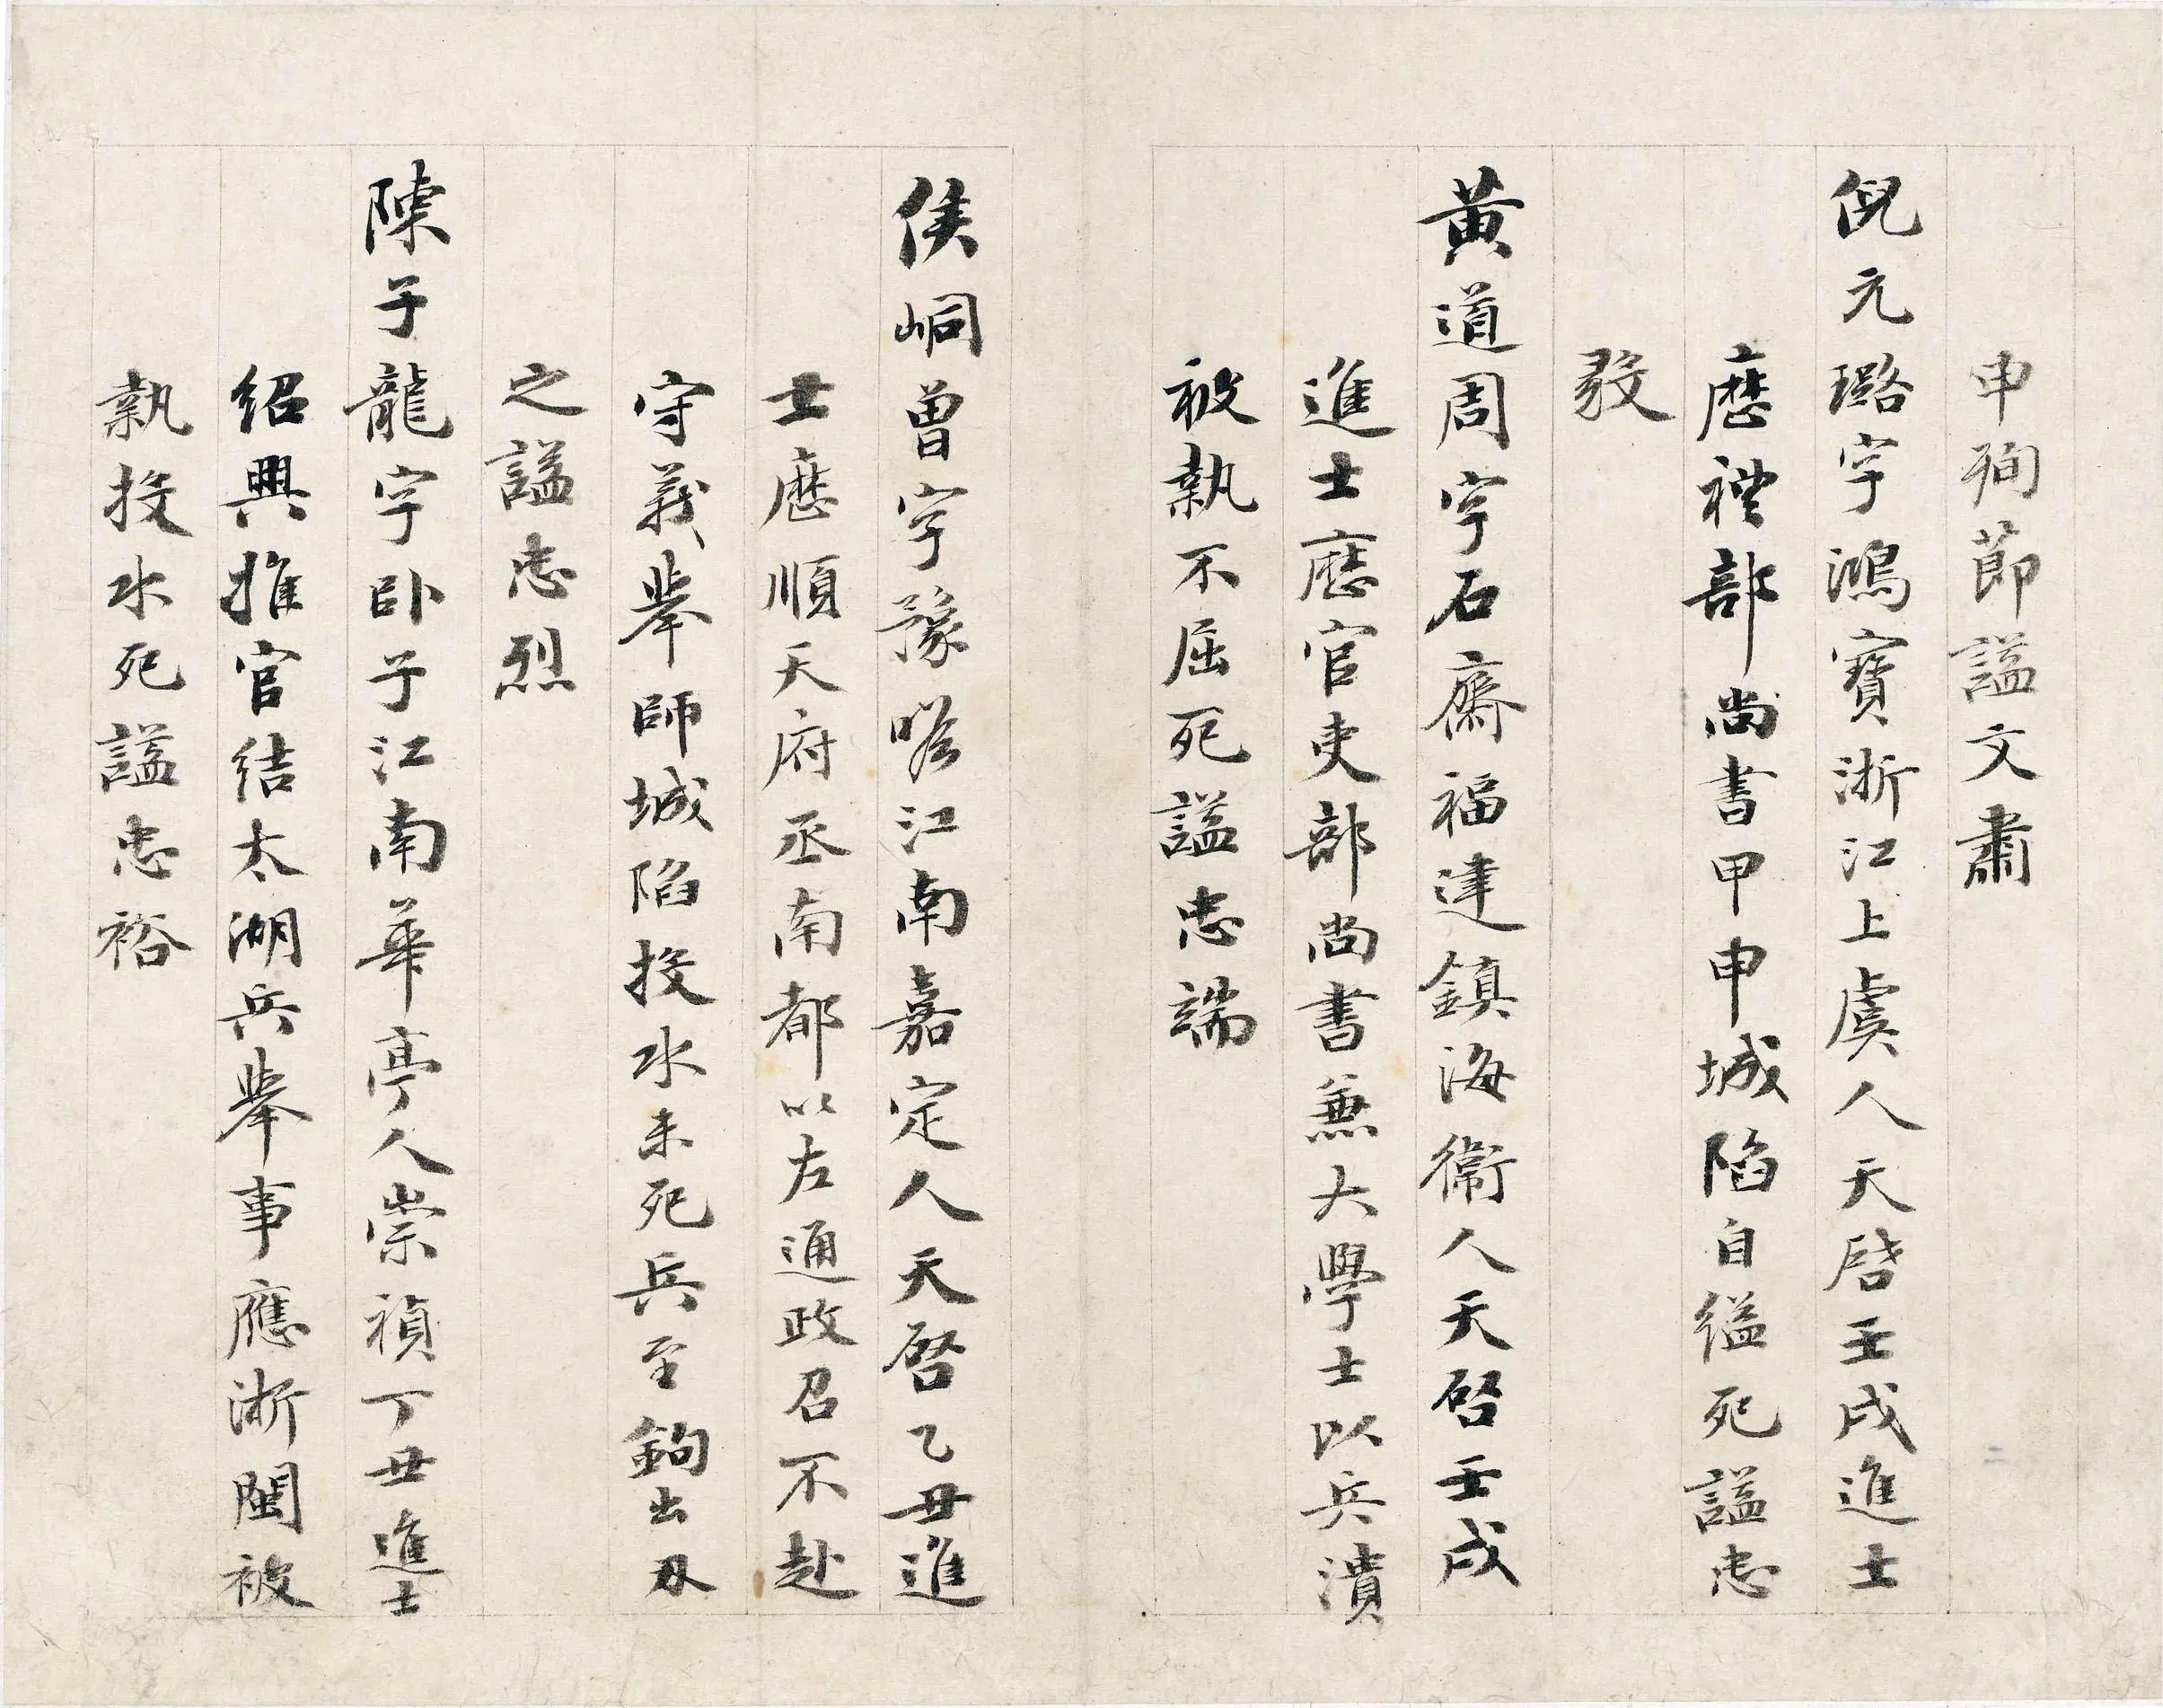 申殉節謚文肅
倪元璐字鴻寶浙江上虞人天啓壬戌進士
歷禮部尚書甲申城陷自縊死謚忠
黃道周字石齋福建鎮海衞人天啓壬戌
進士歷官吏部尚書兼大學士以兵潰
被執不屈死謚忠端
侯峒曾字豫嗒江南嘉定人天啓乙丑進
士歷順天府丞南都以左通政召不赴
守義舉師城陷投水未死兵至鉤出刃
之謚忠烈
陳子龍字臥子江南華亭人崇禎丁丑進士
紹興推官結太湖兵舉事應浙閩被
執投水死謚忠裕